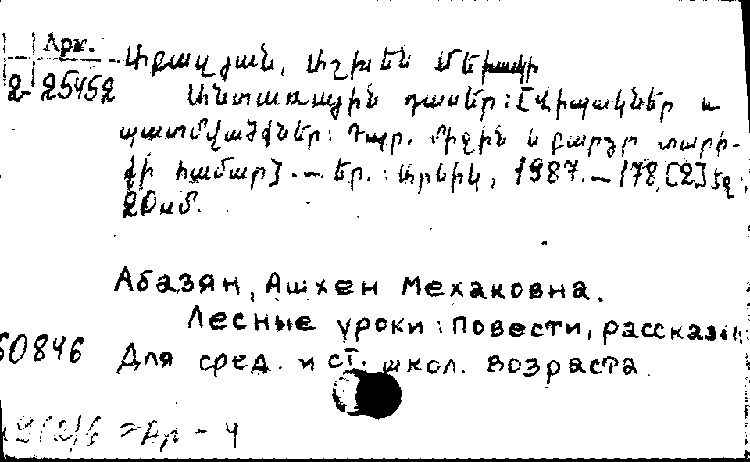 Арм.
2-25452
Աբազյան, Աշխեն Մեխակի
Անտառային դասեր: [Վիպակներ և
պատմվածքներ: Դպր. միջին և բարձր տարի-
քի համար]. — Եր.: Արևիկ, 1987. — 178, [2] էջ
20 սմ.
Абазян, Ашхен Мехаковна.
Лесные уроки: Повести, рассказы
60846
Для сред. и ст. школ. возраста.